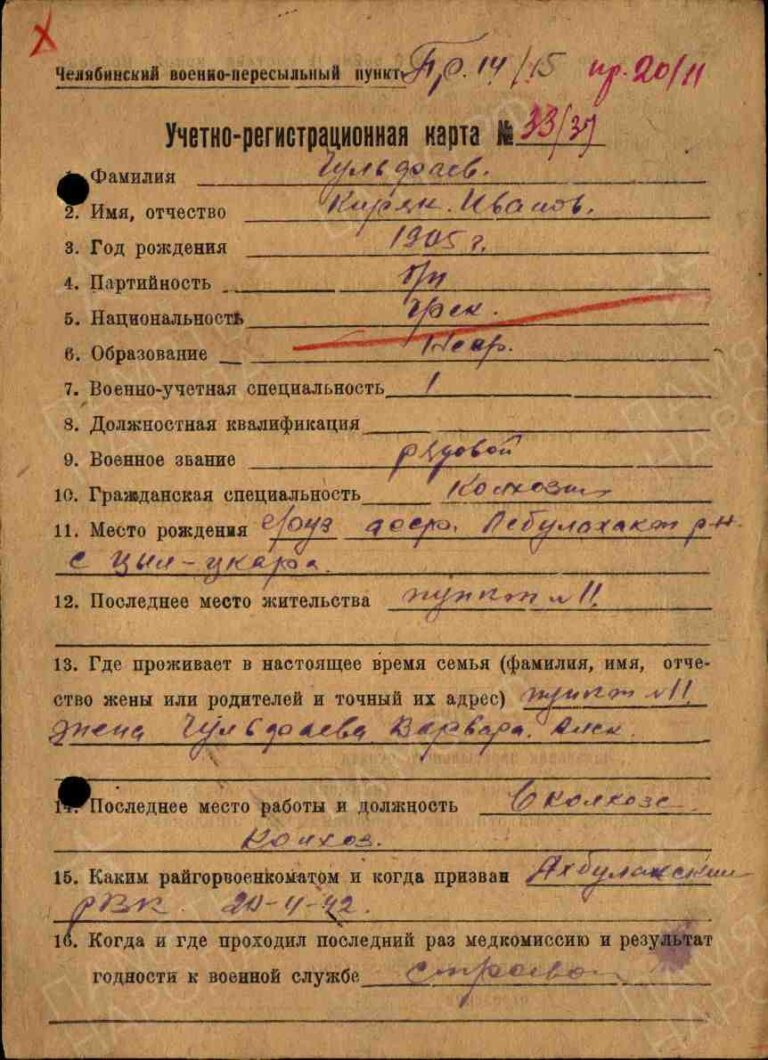 Челябинский военно-пересыльный пункт Пр. 14/15 пр. 20/11
Учетно-регистрационная карта № 33/37
1. Фамилия Гульфаев.
2. Имя, отчество Киряк. Иванов.
3. Год рождения 1905 г.
4. Партийность б/п
5. Национальность Грек.
6. Образование Негр.
7. Военно-учетная специальность 1
8. Должностная квалификация
9. Военное звание рядовой
10. Гражданская специальность Колхозник
11. Место рождения Груз асср.  р-н
с Цын-цкаро.
12. Последнее место жительства пункт № 11
13. Где проживает в настоящее время семья (фамилия, имя, отче-
ство жены или родителей и точный их адрес) пункт № 11
жена Гульфаева Варвара. Алек.
14. Последнее место работы и должность В колхозе
Колхоз.
15. Каким райгорвоенкоматом и когда призван Акбулакский
РВК 20-4-42.
16. Когда и где проходил последний раз медкомиссию и результат
годности к военной службе строевой